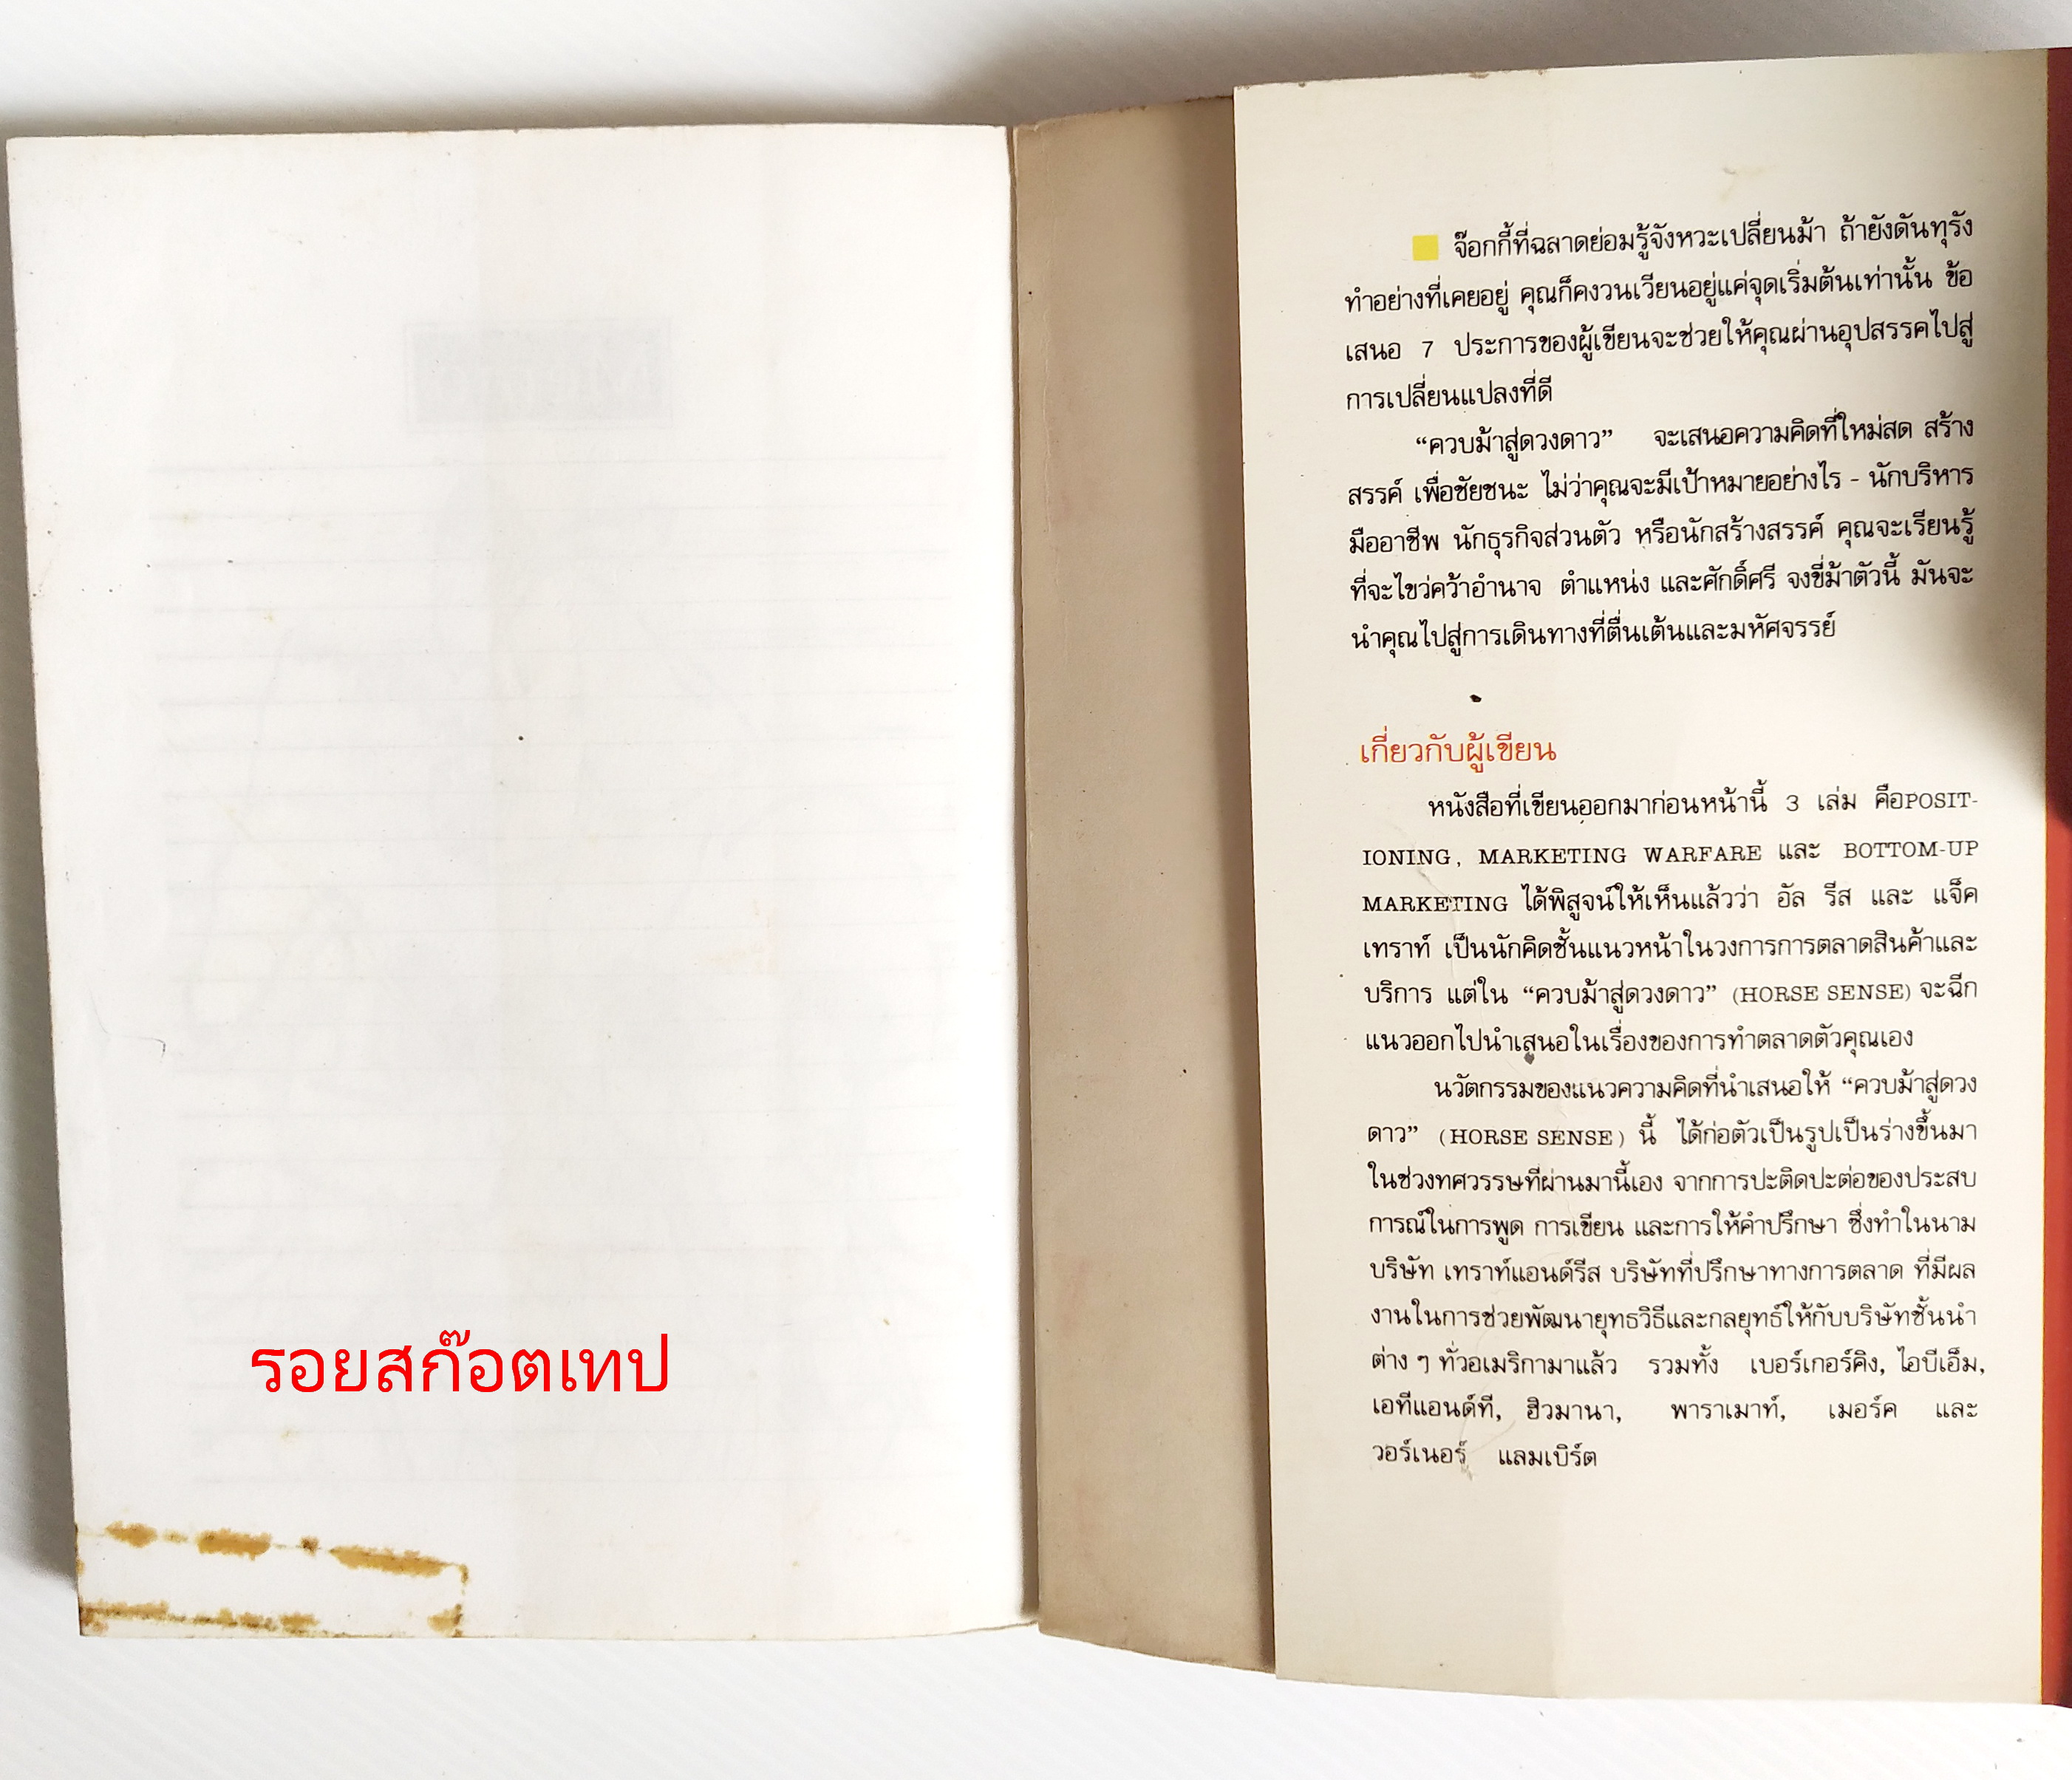 รอยสก๊อตเทป
จ๊อกกี้ที่ฉลาดย่อมรู้จังหวะเปลี่ยนม้า ถ้ายังดันทุรัง
ทำอย่างที่เคยอยู่ คุณก็คงวนเวียนอยู่แค่จุดเริ่มต้นเท่านั้น ข้อ
เสนอ 7 ประการของผู้เขียนจะช่วยให้คุณผ่านอุปสรรคไปสู่
การเปลี่ยนแปลงที่ดี
“ควบม้าสู่ดวงดาว” จะเสนอความคิดที่ใหม่สด สร้าง
สรรค์ เพื่อชัยชนะ ไม่ว่าคุณจะมีเป้าหมายอย่างไร - นักบริหาร
มืออาชีพ นักธุรกิจส่วนตัว หรือนักสร้างสรรค์ คุณจะเรียนรู้
ที่จะไขว่คว้าอำนาจ ตำแหน่ง และศักดิ์ศรี จงขี่ม้าตัวนี้ มันจะ
นำคุณไปสู่การเดินทางที่ตื่นเต้นและมหัศจรรย์
เกี่ยวกับผู้เขียน
หนังสือที่เขียนออกมาก่อนหน้านี้ 3 เล่ม คือPOSIT-
IONING, MARKETING WARFARE และ BOTTOM-UP
MARKETING ได้พิสูจน์ให้เห็นแล้วว่า อัล รีส และ แจ็ค
เทราท์ เป็นนักคิดชั้นแนวหน้าในวงการการตลาดสินค้าและ
บริการ แต่ใน “ควบม้าสู่ดวงดาว” (HORSE SENSE) จะฉีก
แนวออกไปนำเสนอในเรื่องของการทำตลาดตัวคุณเอง
นวัตกรรมของแนวความคิดที่นำเสนอให้ “ควบม้าสู่ดวง
ดาว” (HORSE SENSE) นี้ ได้ก่อตัวเป็นรูปเป็นร่างขึ้นมา
ในช่วงทศวรรษที่ผ่านมานี้เอง จากการปะติดปะต่อของประสบ
การณ์ในการพูด การเขียน และการให้คำปรึกษา ซึ่งทำในนาม
บริษัท เทราท์แอนด์รีส บริษัทที่ปรึกษาทางการตลาด ที่มีผล
งานในการช่วยพัฒนายุทธวิธีและกลยุทธ์ให้กับบริษัทชั้นนำ
ต่าง ๆ ทั่วอเมริกามาแล้ว รวมทั้ง เบอร์เกอร์คิง, ไอบีเอ็ม,
เอทีแอนด์ที, ฮิวมานา, พาราเมาท์, เมอร์ค และ
วอร์เนอร์ แลมเบิร์ต